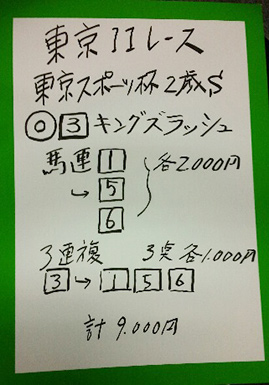 東京11レース
東京スポーツ杯2歳S
◎ 3 キングズラッシュ
馬連 1 各2,000円
→ 5
6
3連複 3点各1,000円
3 → 1 5 6
計 9,000円